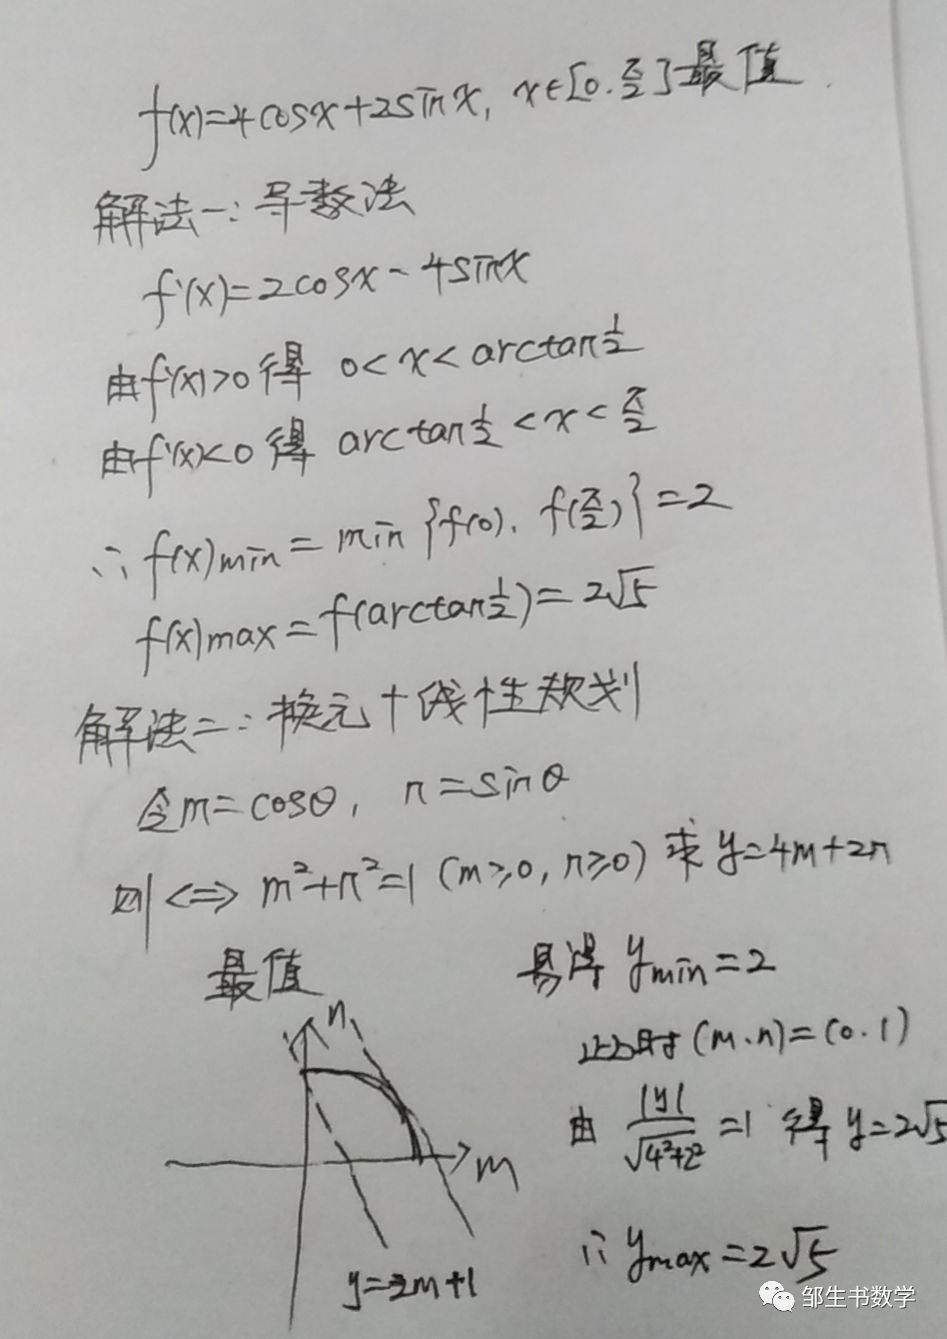 f(x)=4cosx+2sinx, x∈[0.π/2]最值
解法一:导数法
f'(x)=2cosx-4sinx
由f'(x)>0得 0<x<arctan1/2
由f'(x)<0得 arctan1/2<x<π/2
∴f(x)min=min{f(0).f(π/2)}=2
f(x)max=f(arctan1/2)=2√5
解法二:换元+线性规划
令m=cosθ, n=sinθ
则<=>m²+n²=1(m≥0,n≥0)求y=4m+2n
最值
易得ymin=2
此时(m.n)=(0.1)
由|y|/√(4²+2²)=1得y=2√5
∴ymax=2√5
n
m
y=-2m+1
邹生书数学